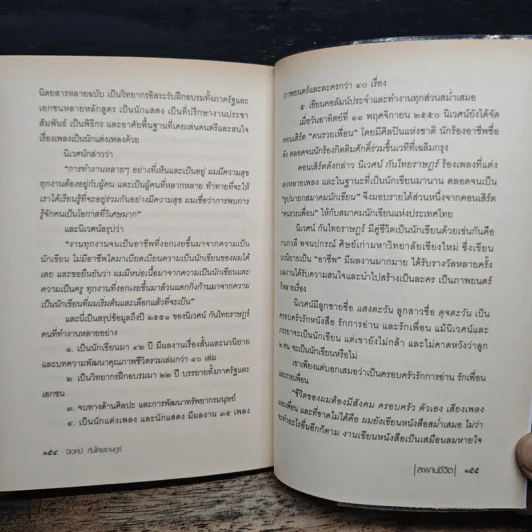 นิตยสารหลายฉบับ เป็นวิทยากรอิสระรับฝึกอบรมทั้งภาครัฐและ
เอกชนหลายหลักสูตร เป็นนักแสดง เป็นที่ปรึกษางานประชา
สัมพันธ์ เป็นพิธีกร และอาศัยพื้นฐานที่เคยเล่นดนตรีและสนใจ
เรื่องเพลงเป็นนักแต่งเพลงด้วย
นิเวศน์กล่าวว่า
"การทำงานหลายๆ อย่างที่เห็นและเป็นอยู่ ผมมีความสุข
ทุกงานต้องอยู่กับผู้คน และเป็นผู้คนที่หลากหลาย ท้าทายที่จะให้
เราได้เรียนรู้ที่จะอยู่ร่วมกันอย่างมีความสุข ผมเชื่อว่าการพบการ
รู้จักคนเป็นโอกาสที่วิเศษมาก"
และนิเวศน์สรุปว่า
"งานทุกงานจนเป็นอาชีพที่งอกเงยขึ้นมาจากความเป็น
นักเขียน ไม่มีอาชีพใดมาเบียดเบียนความเป็นนักเขียนของผมได้
เลย และขอยืนยันว่า ผมมีหน่อเนื้อมาจากความเป็นนักเขียนและ
ความเป็นครู ทุกงานที่งอกเงยขึ้นมาล้วนแตกกิ่งก้านมาจากความ
เป็นนักเขียนที่ผมเริ่มต้นและเลือกแล้วที่จะเป็น"
และนี่เป็นสรุปข้อมูลถึงปี ๒๕๕๑ ของนิเวศน์ กันไทยราษฎร์
คนที่ทำงานหลายอย่าง
๑. เป็นนักเขียนมา ๔๒ ปี มีผลงานเรื่องสั้นและนวนิยาย
และบทความพัฒนาคุณภาพชีวิตรวมเล่มกว่า ๔๐ เล่ม
๒. เป็นวิทยากรฝึกอบรมมา ๒๒ ปี บรรยายทั้งภาครัฐและ
เอกชน
๓. จบทางด้านศิลปะ และการพัฒนาทรัพยากรมนุษย์
๔. เป็นนักแต่งเพลง และนักแสดง มีผลงาน ๓๕ เพลง
๑๕๔ นิเวศน์ กันไทยราษฎร์
ภาพยนตร์และละครกว่า ๔๐ เรื่อง
๕. เขียนคอลัมน์ประจำและทำงานทุกส่วนสม่ำเสมอ
เมื่อวันอาทิตย์ที่ ๑๘ พฤศจิกายน ๒๕๕๐ นิเวศน์ยังได้จัด
คอนเสิร์ต "คนรวยเพื่อน" โดยมีศิลปินแห่งชาติ นักร้องอาชีพชื่อ
ดัง ตลอดจนนักร้องกิตติมศักดิ์ร่วมขึ้นเวทีที่เฉลิมกรุง
คอนเสิร์ตดังกล่าว นิเวศน์ กันไทยราษฎร์ ร้องเพลงที่แต่ง
ลงหลายเพลง และในฐานะที่เป็นนักเขียนมานาน ตลอดจนเป็น
"อุปนายกสมาคมนักเขียน" จึงมอบรายได้ส่วนหนึ่งจากคอนเสิร์ต
"คนรวยเพื่อน" ให้กับสมาคมนักเขียนแห่งประเทศไทย
นิเวศน์ กันไทยราษฎร์ มีคู่ชีวิตเป็นนักเขียนด้วยเช่นกันคือ
พจนปกรณ์ ศิษย์เก่ามหาวิทยาลัยเชียงใหม่ ซึ่งเขียน
เป็น "อาชีพ" มีผลงานมากมาย ได้รับรางวัลหลายครั้ง
งานได้รับความสนใจและนำไปสร้างเป็นละคร เป็นภาพยนตร์
หลายเรื่อง
นิเวศน์มีลูกชายชื่อ แสงตะวัน ลูกสาวชื่อ ดุจตะวัน เป็น
ครอบครัวรักหนังสือ รักการอ่าน และรักเพื่อน แม้นิเวศน์และ
จะเป็นนักเขียน แต่เขายังไม่กล้า และไม่คาดหวังว่าลูก
๒ คน จะเป็นนักเขียนหรือไม่
เขาเพียงแต่บอกเสมอว่าเป็นครอบครัวรักการอ่าน รักเพื่อน
และรวยเพื่อน
"ชีวิตของผมต้องมีสังคม ครอบครัว ตัวเอง เสียงเพลง
และเพื่อน และที่ขาดไม่ได้คือ ผมยังเขียนหนังสือสม่ำเสมอ ไม่ว่า
จะทำอะไรอื่นอีกก็ตาม งานเขียนหนังสือเป็นเสมือนลมหายใจ
|สะพานชีวิต| ๑๕๕